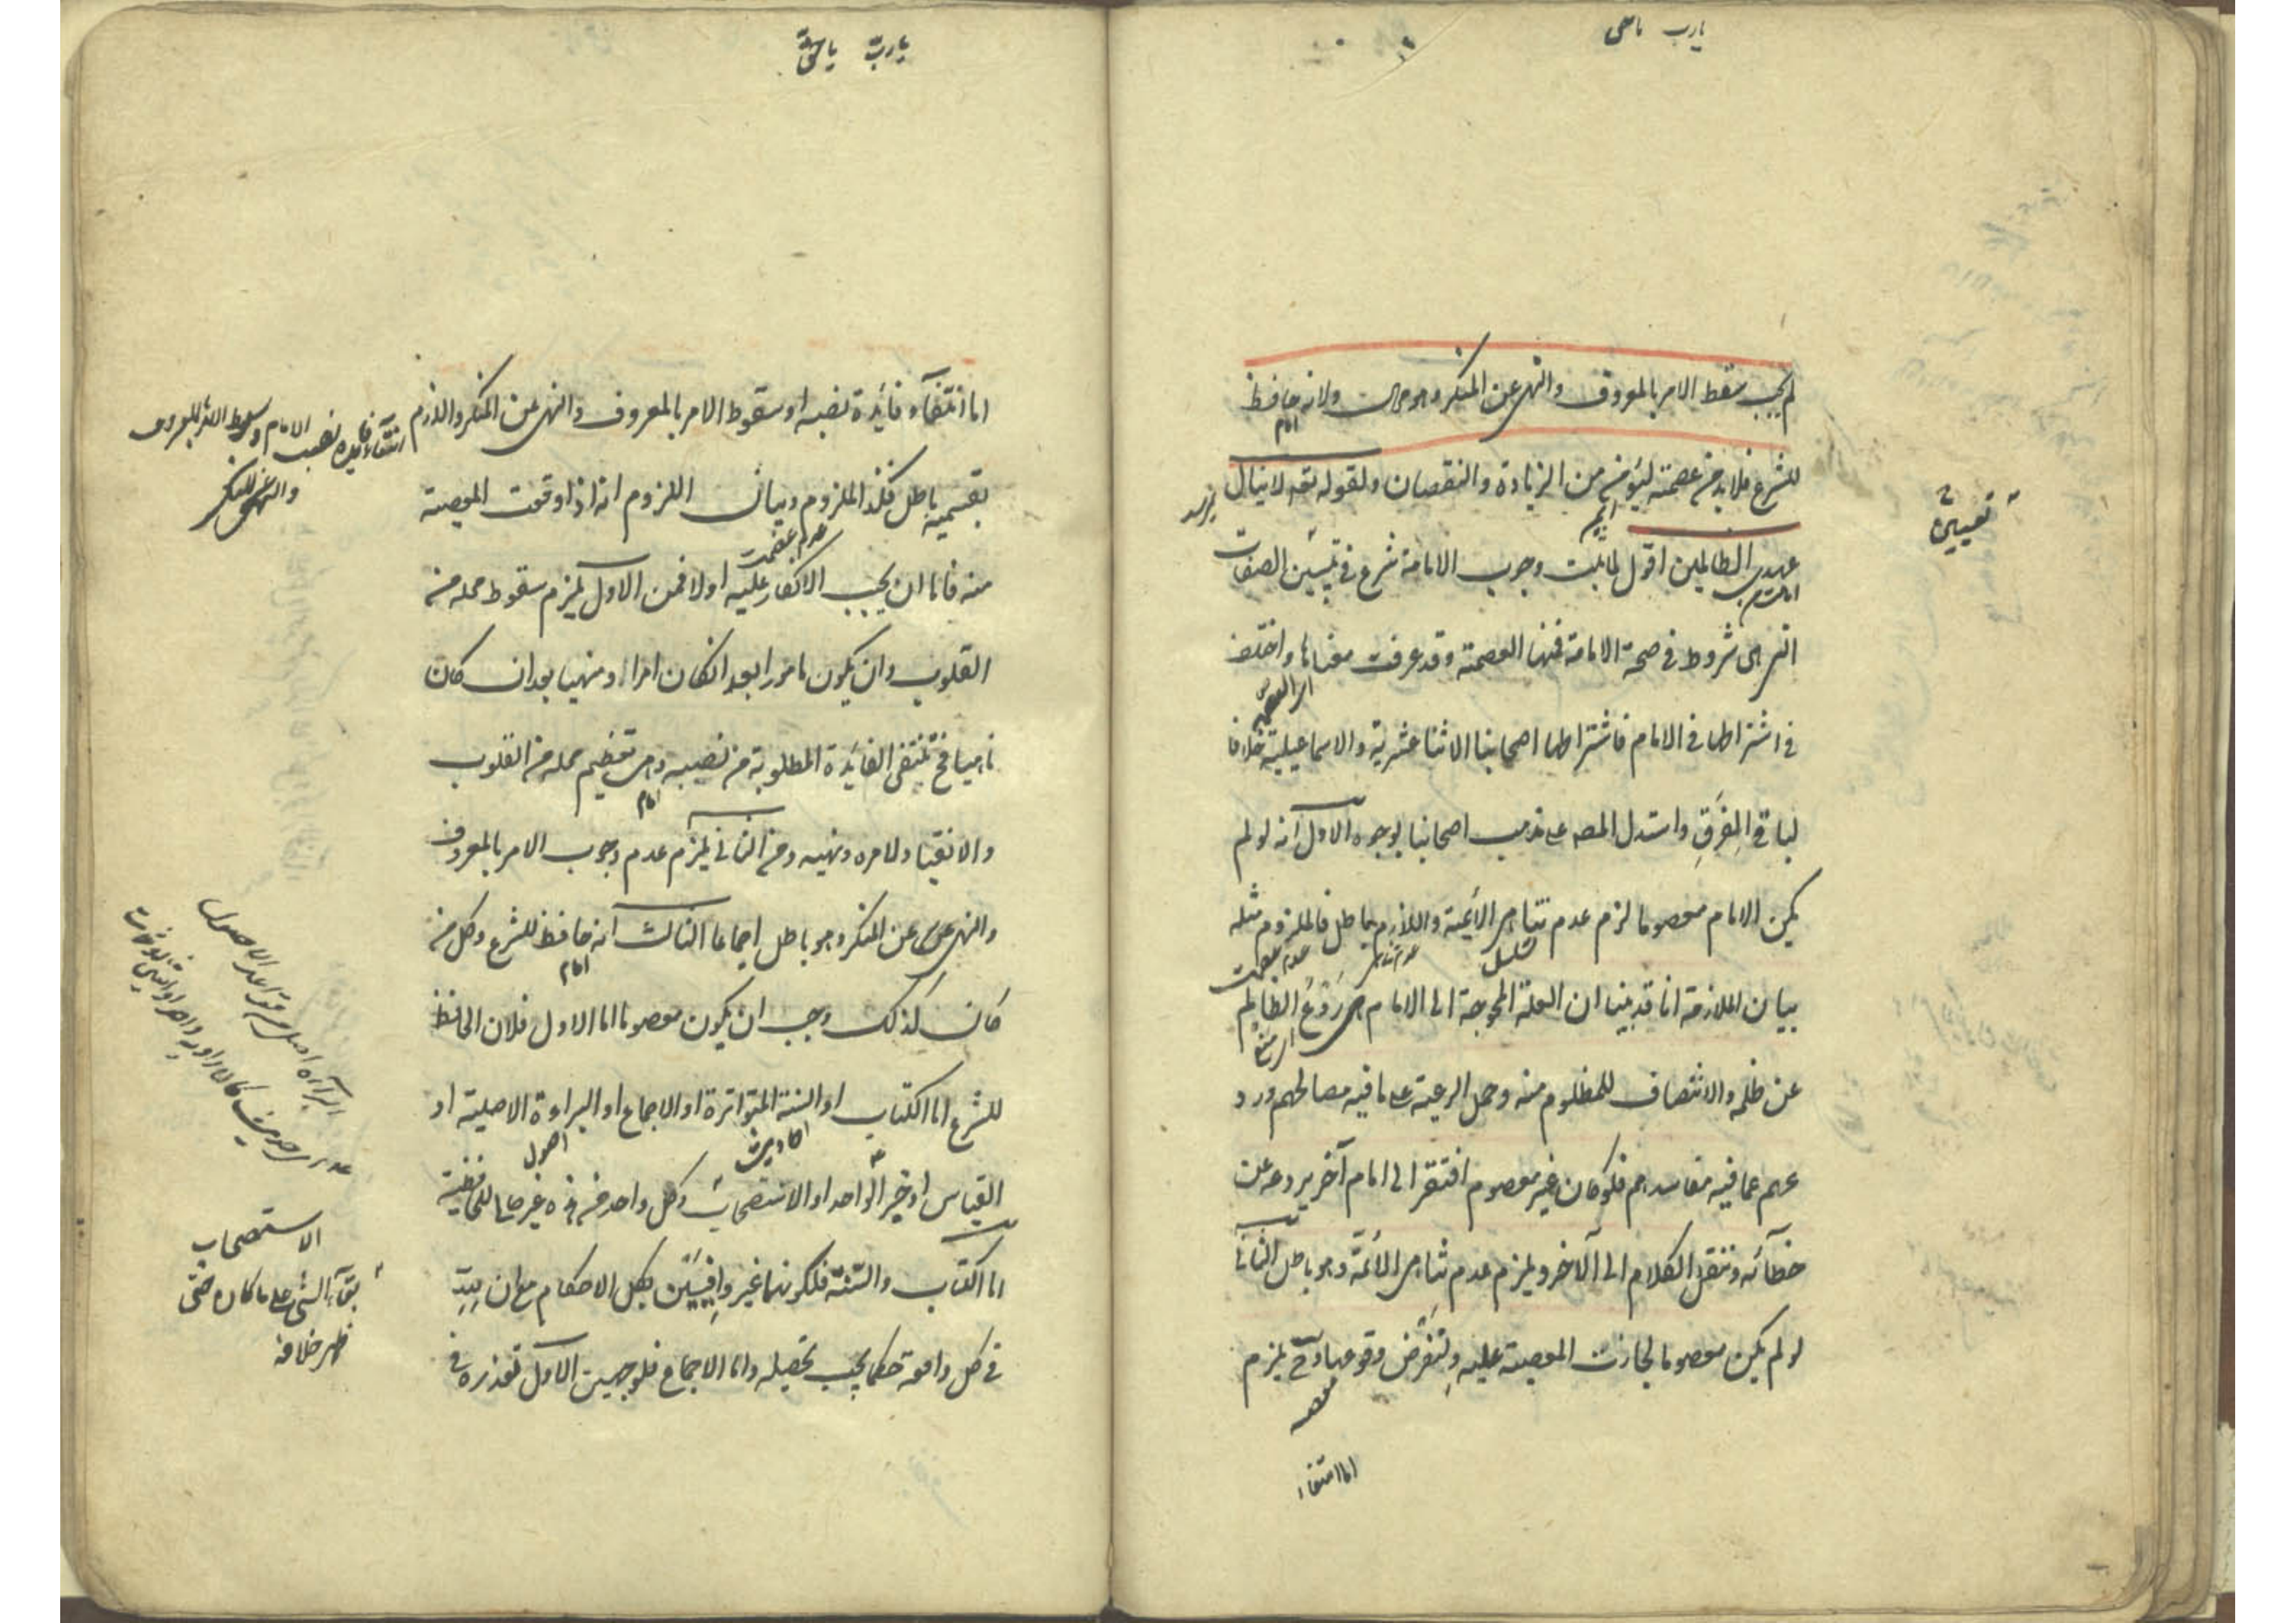 يا رب
لم يجب سقط الامر بالمعروف والنهى عن المنكر وهو محال ولانه حافظ
امام
للشرع فلا بد من عصمته ليؤمن من الزيادة والنقصان ولقوله تعه لا ينال
نميرسد
عهدى الظالمين اقول لما ثبت وجوب الامامة شرع فى تبيين الصفات
تعيين
امامت
التى هى شروط فى صحة الامامة فمنها العصمة وقد عرفت معناها واختلف
اى العصمة
فى اشتراطها فى الامام فاشترطها اصحابنا الاثنا عشرية والاسماعيلية خلافا
لباقى الفِرَقِ واستدل المصه على مذهب اصحابنا بوجوه الاول انه لو لم
يكن الامام معصوما لزم عدم تناهى الائمة واللازم باطل فالملزوم مثله
تسلسل
عدم تناهى
عدم عصمت
بيان الملازمة انا قد بينا ان العلة المحوجة الى الامام هى رَدْعُ الظالم
اى منع
عن ظلمه والانتصاف للمظلوم منه وحمل الرعية على ما فيه مصالحهم ورد
عهم عما فيه مفاسدهم فلو كان غير معصوم افتقر الى امام آخر يردعه عن
خطآئه وننقل الكلام الى الآخر ويلزم عدم تناهى الائمّة وهو باطل الثانى
لو لم يكن معصوما لجازت المعصية عليه ولنفرض وقوعها وح يلزم
اما انتفاء
يا رب
اما انتفآء فائدة نصبه او سقوط الامر بالمعروف والنهى عن المنكر واللازم
انتفاء فايده نصب الامام وسقوط الامر بالمعروف
والنهى عن المنكر
بقسميه باطل فكذا الملزوم وبيان اللزوم انه اذا وقعت المعصية
عدم عصمت
منه فاما ان يجب الانكار عليه اولا فمن الاول يلزم سقوط محله من
القلوب وان يكون مامورا بعد ان كان امرا او منهيا بعد ان كان
ناهيا فح تنتفى الفائدة المطلوبة من نصبه وهى تعظيم محله من القلوب
امام
والانقياد لامره ونهيه ومن الثانى يلزم عدم وجوب الامر بالمعروف
والنهى عن المنكر وهو باطل اجماعا الثالث انه حافظ للشرع وكل من
امام
كان كذلك وجب ان يكون معصوما اما الاول فلان الحافظ
للشرع اما الكتاب او السنة المتواترة او الاجماع او البراءة الاصلية او
احاديث
اصول
القياس او خبر الواحد او الاستصحاب وكل واحد من هذه غير صالح للمحافظية
اما الكتاب والسّنّة فلكونهما غير وافِيَيْن بكل الاحكام مع ان للهِ
فى كل واقعة حكما يجب تحصيله واما الاجماع فلوجهين الاول تعذره فى
البرآءة اصل من قواعد الاصول
الاستصحاب
بقآء الشئ على ما كان حتى
ظهر خلافه